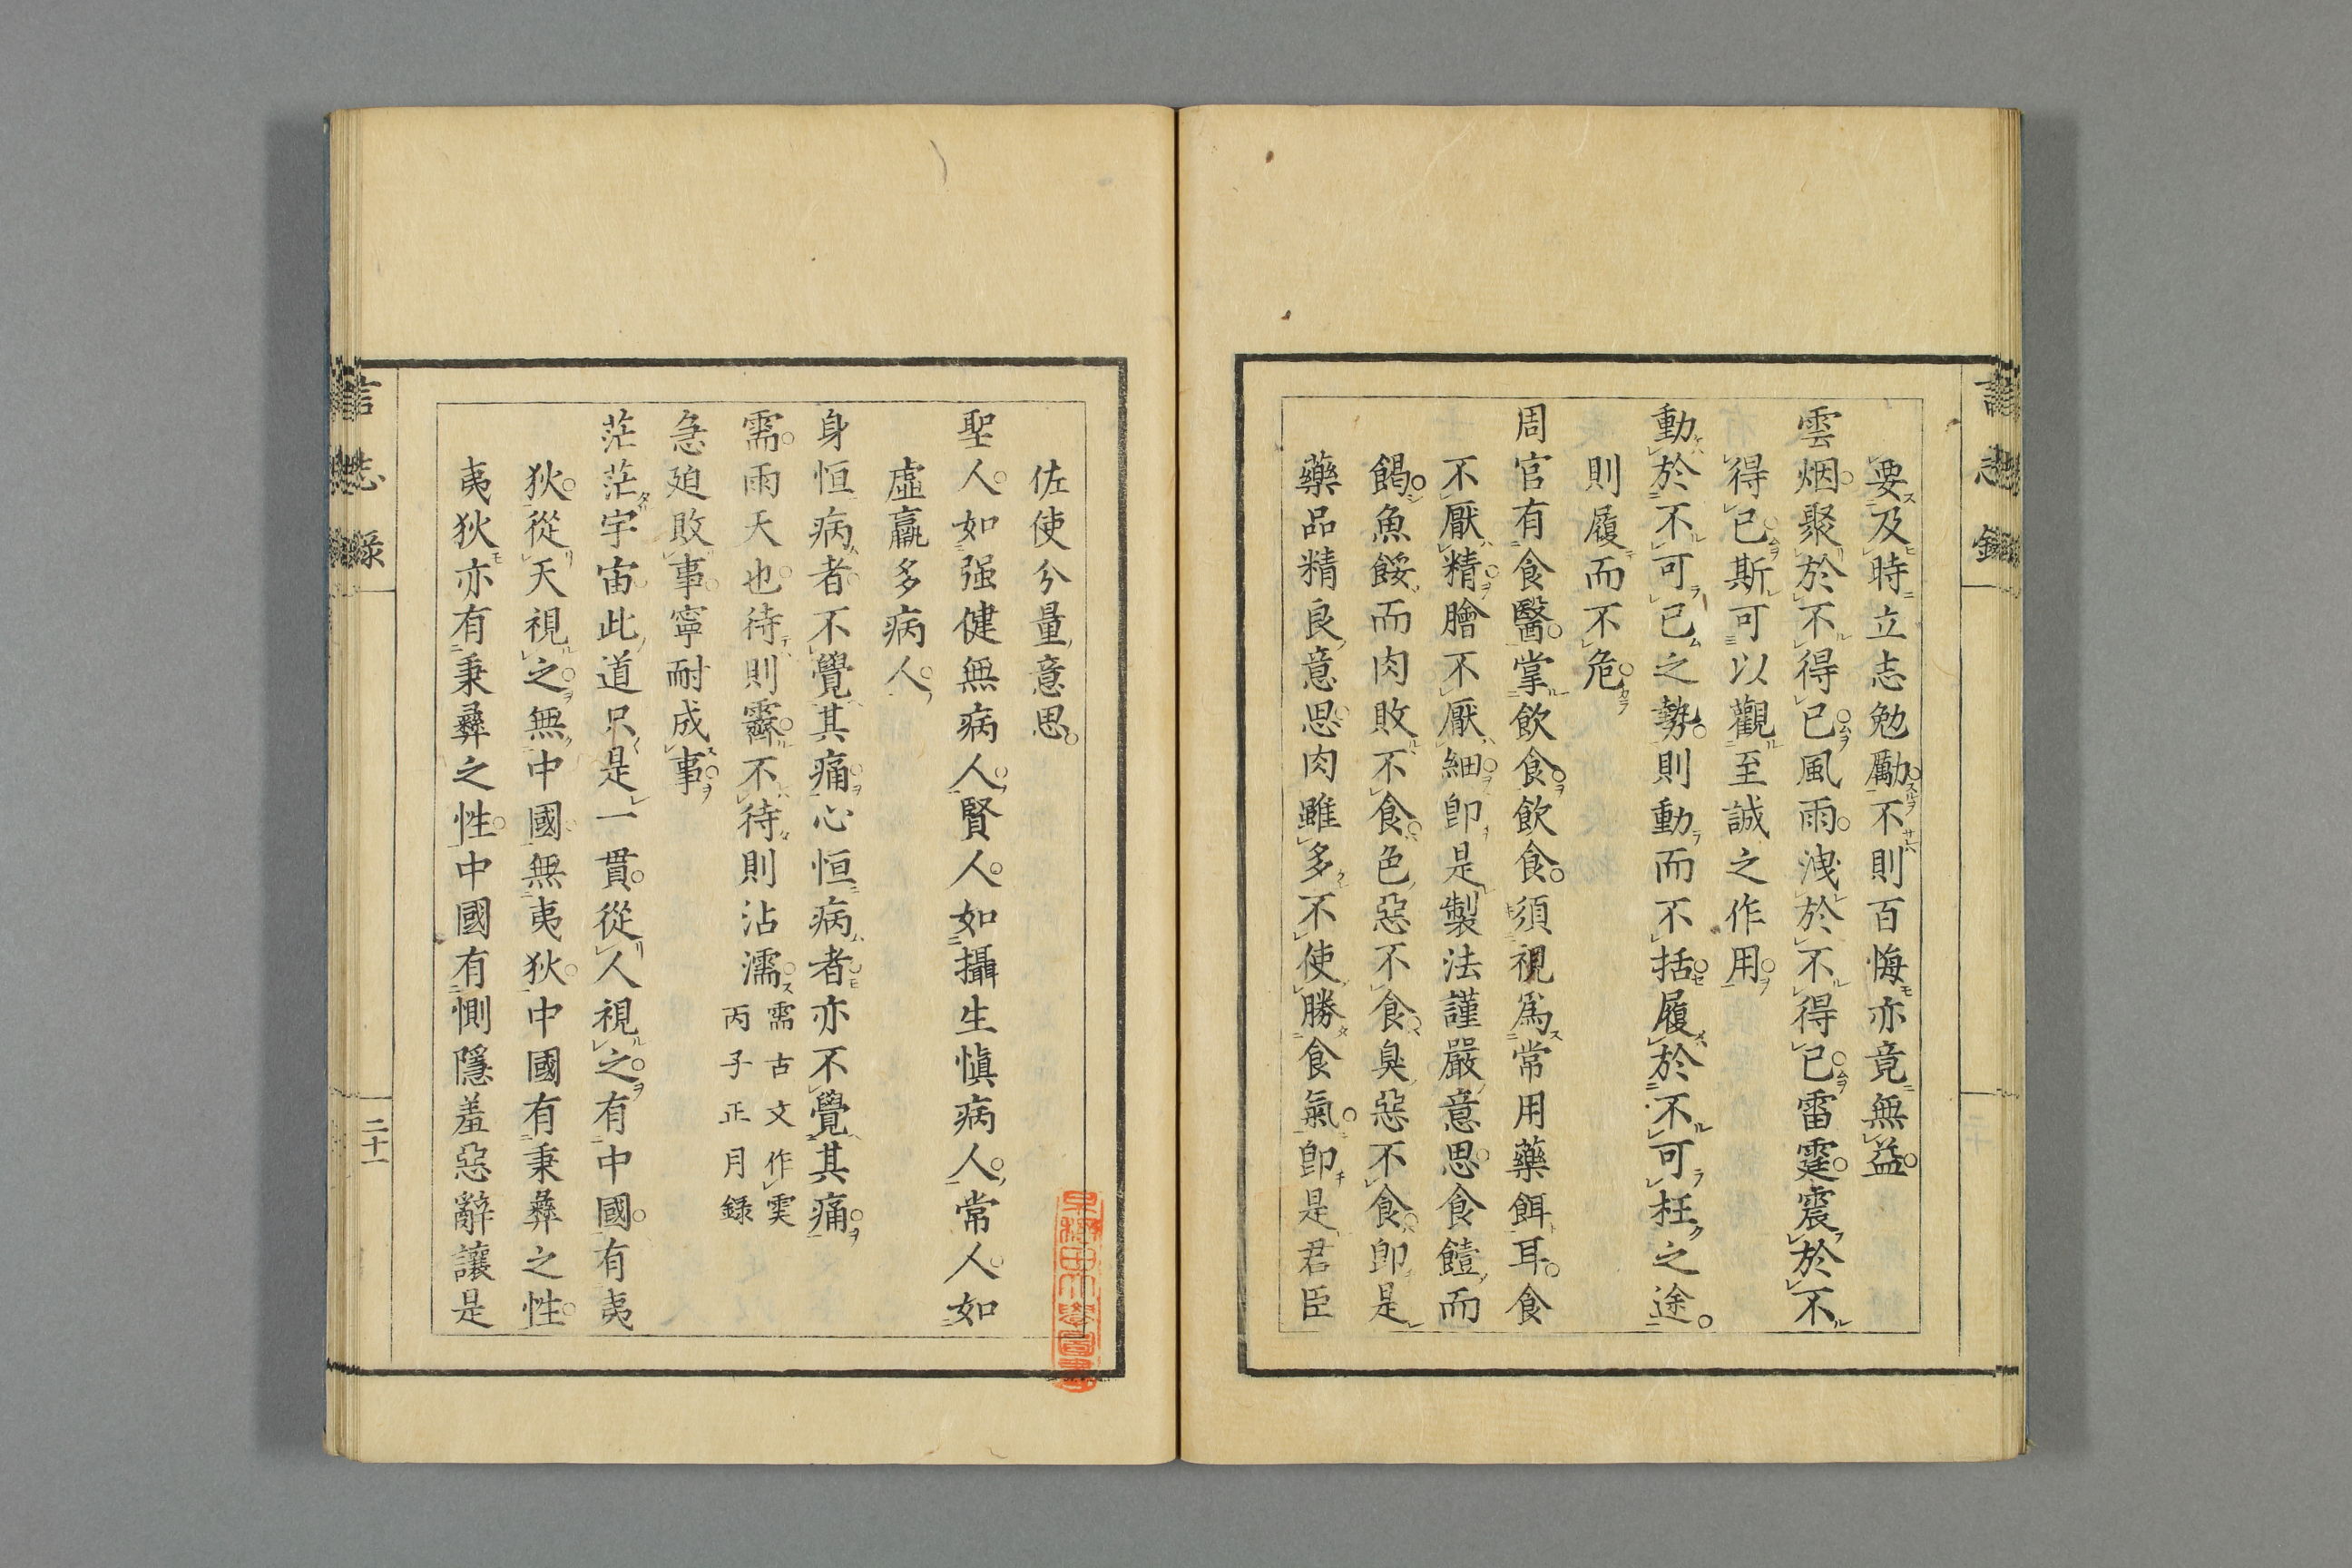 要及時立志勉勵不則百悔亦竟無益
雲烟聚於不得已風雨洩於不得已雷霆震於不
得已斯可以觀至誠之作用
動於不可已之勢則動而不括履於不可枉之途
則履而不危
周官有食醫掌飲食飲食須視爲常用藥餌耳食
不厭精膾不厭細卽是製法謹嚴意思食饐而
餲魚餒而肉敗不食色惡不食臭惡不食卽是
藥品精良意思肉雖多不使勝食氣卽是君臣
佐使分量意思
聖人如强健無病人賢人如攝生愼病人常人如
虛羸多病人
身恒病者不覺其痛心恒病者亦不覺其痛
需雨天也待則霽不待則沾濡需古文作䨔
丙子正月錄
急廹敗事寧耐成事
茫茫宇宙此道只是一貫從人視之有中國有夷
狄從天視之無中國無夷狄中國有秉彝之性
夷狄亦有秉彝之性中國有惻隱羞惡辭讓是
言志錄
二十一
早稻田大學圖書